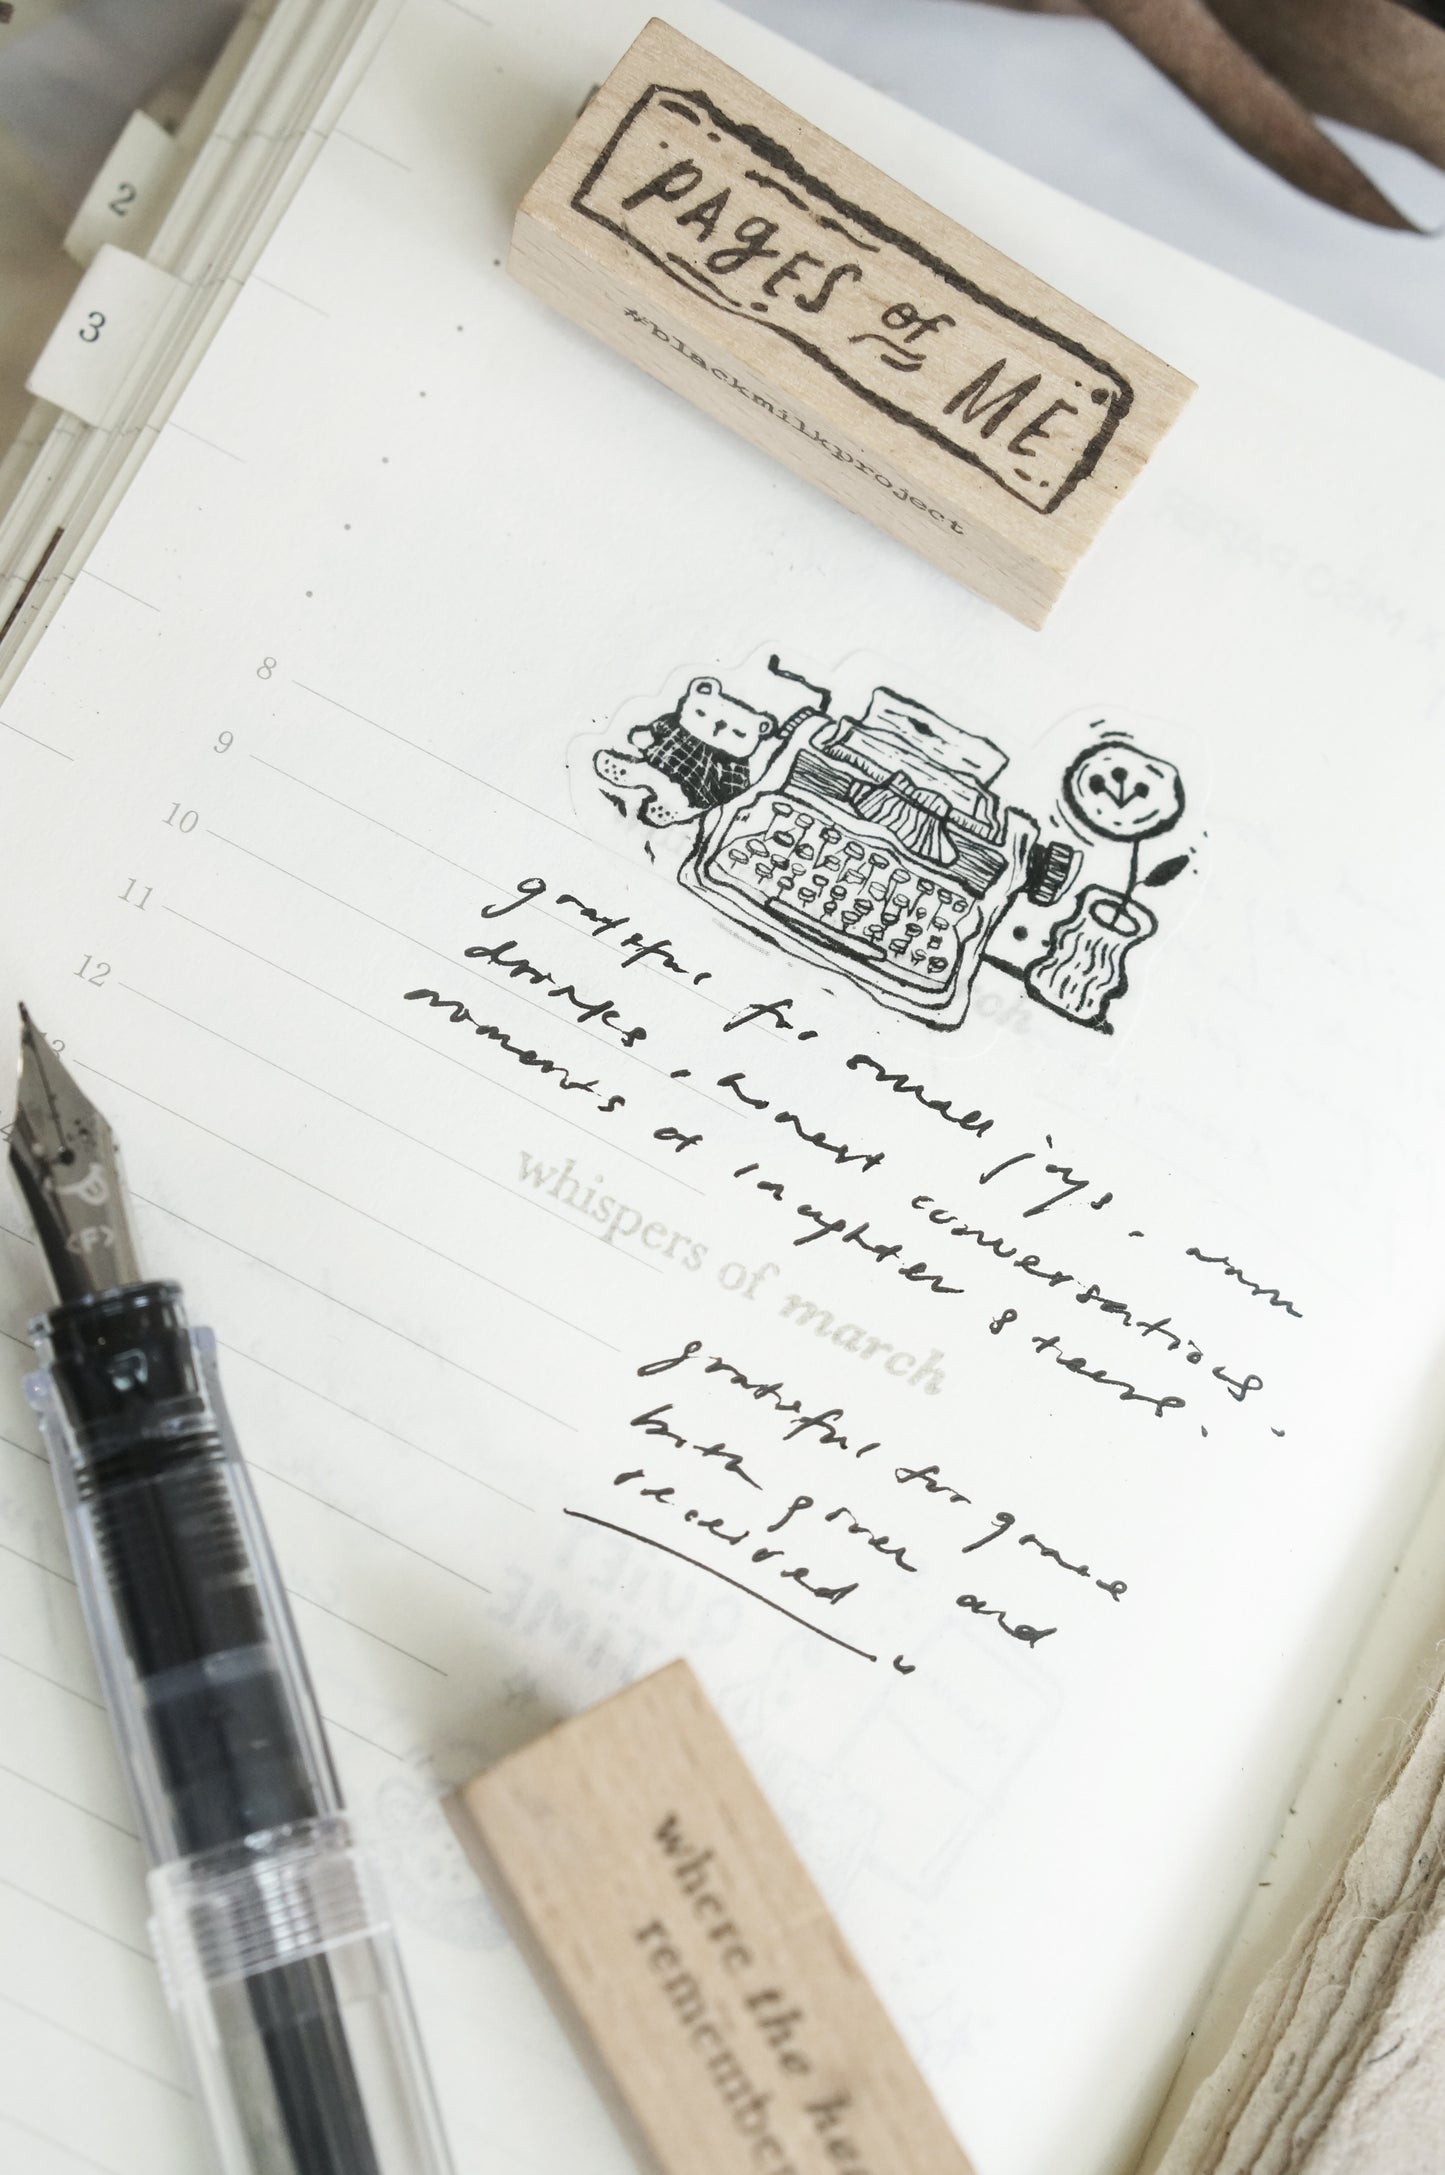 2
3
PAGES of ME
#blackmilkproject
8
9
10
11
12
13
grateful for small joys. warm
drinks, honest conversations.
moments of laughter & tears.
whispers of march
grateful for grace
both given and
received
QUIET
TIME
where the
remember
P
<F>